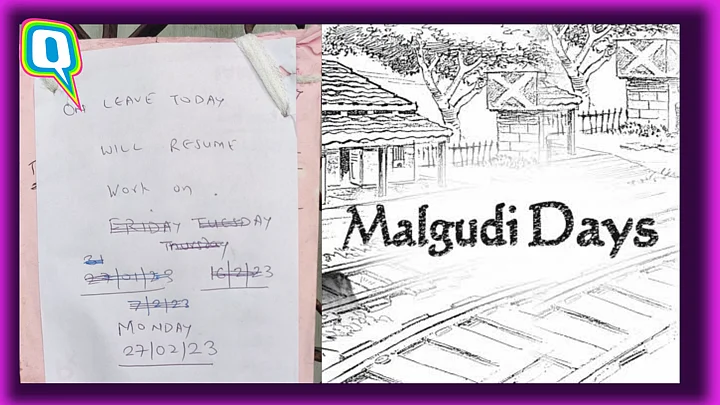 Q
ON LEAVE TODAY
WILL RESUME
Work on .
FRIDAY TUESDAY
Thursday
27/01/23 16/2/23
7/2/23
MONDAY
27/02/23
Malgudi Days